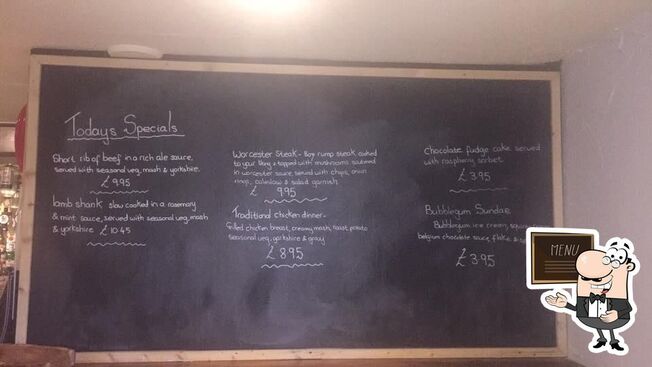 Todays Specials
Short rib of beef in a rich ale sauce,
served with seasonal veg, mash & yorkshire.
£ 9.95
lamb shank slow cooked in a rosemary
& mint sauce, served with seasonal veg, mash
& yorkshire £ 10.45
Worcester Steak - 8oz rump steak cooked
to your liking & topped with mushrooms sauteed
in worcester sauce, served with chips, onion
rings, coleslaw & salad garnish
£ 9.95
Traditional chicken dinner-
Grilled chicken breast, creamy mash, roast potato
seasonal veg, yorkshire & gravy
£ 8.95
Chocolate fudge cake served
with raspberry sorbet
£ 3.95
Bubblegum Sundae
Bubblegum ice cream,
belgian chocolate sauce, flake &
£ 3.95
MENU